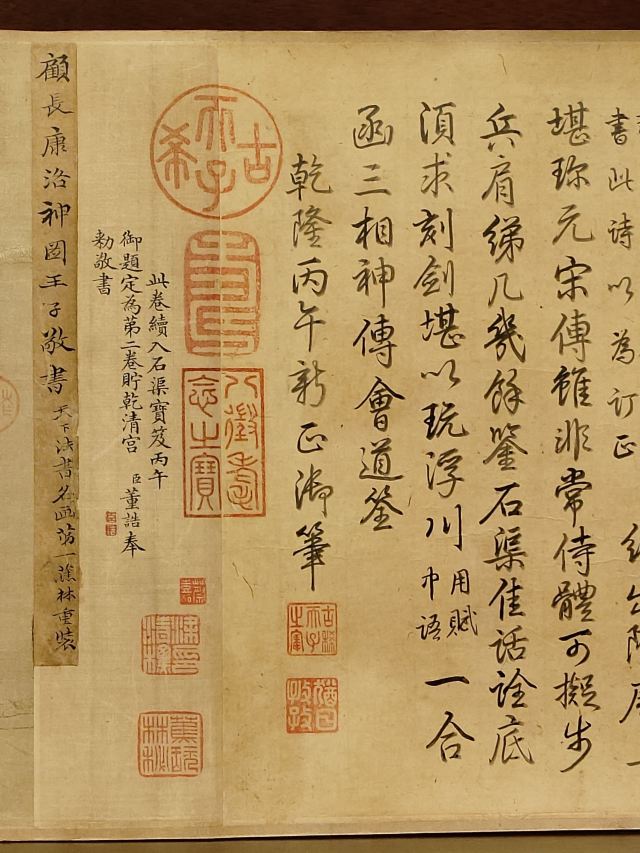 書此詩以為訂正
堪珎元宋傳雖非常侍體可擬步
兵肩綈几幾餘鑒石渠佳話詮底
湏求刻劍堪以玩浮川
用賦
中語
一合
函三相神傳會道筌
乾隆丙午新正御筆
古稀天子
猶日孜孜
古希天子
壽
八徵耄念之寶
此卷續入石渠寶笈丙午
御題定為第二卷貯乾清宫 臣董誥奉
勅敬書
蕉林秘玩
顧長康洛神圖王子敬書
天下法書名画第一蕉林重裝